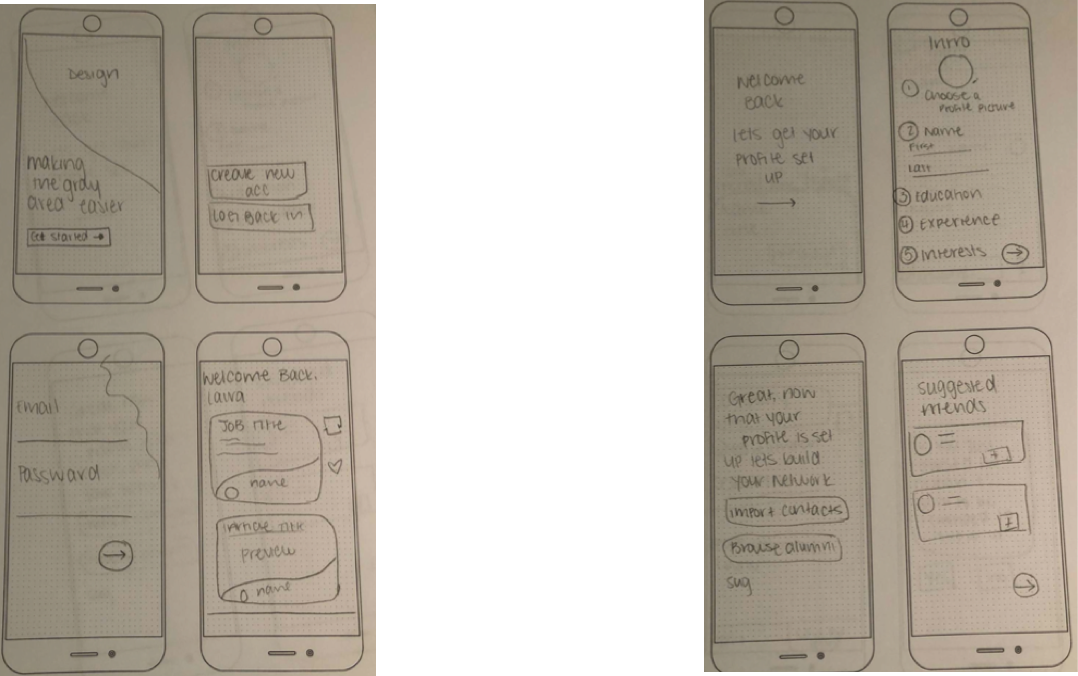 Design
making
the gray
area easier
Get started →
create new
acc
Log Back in
Email
Password
Welcome Back,
Laura
JOB Title
name
Article Title
Preview
name
Welcome
Back
lets get your
profile set
up
Intro
1 Choose a
Profile Picture
2 Name
First
Last
3 Education
4 Experience
5 Interests
Great, now
that your
profile is set
up lets build
your network
import contacts
Browse alumni
sug
suggested
friends
+
+